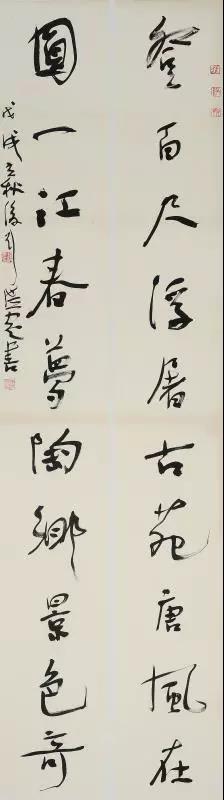 登百尺浮屠古苑唐風在
圓一江春夢陶鄉景色奇
戊戌立秋後月